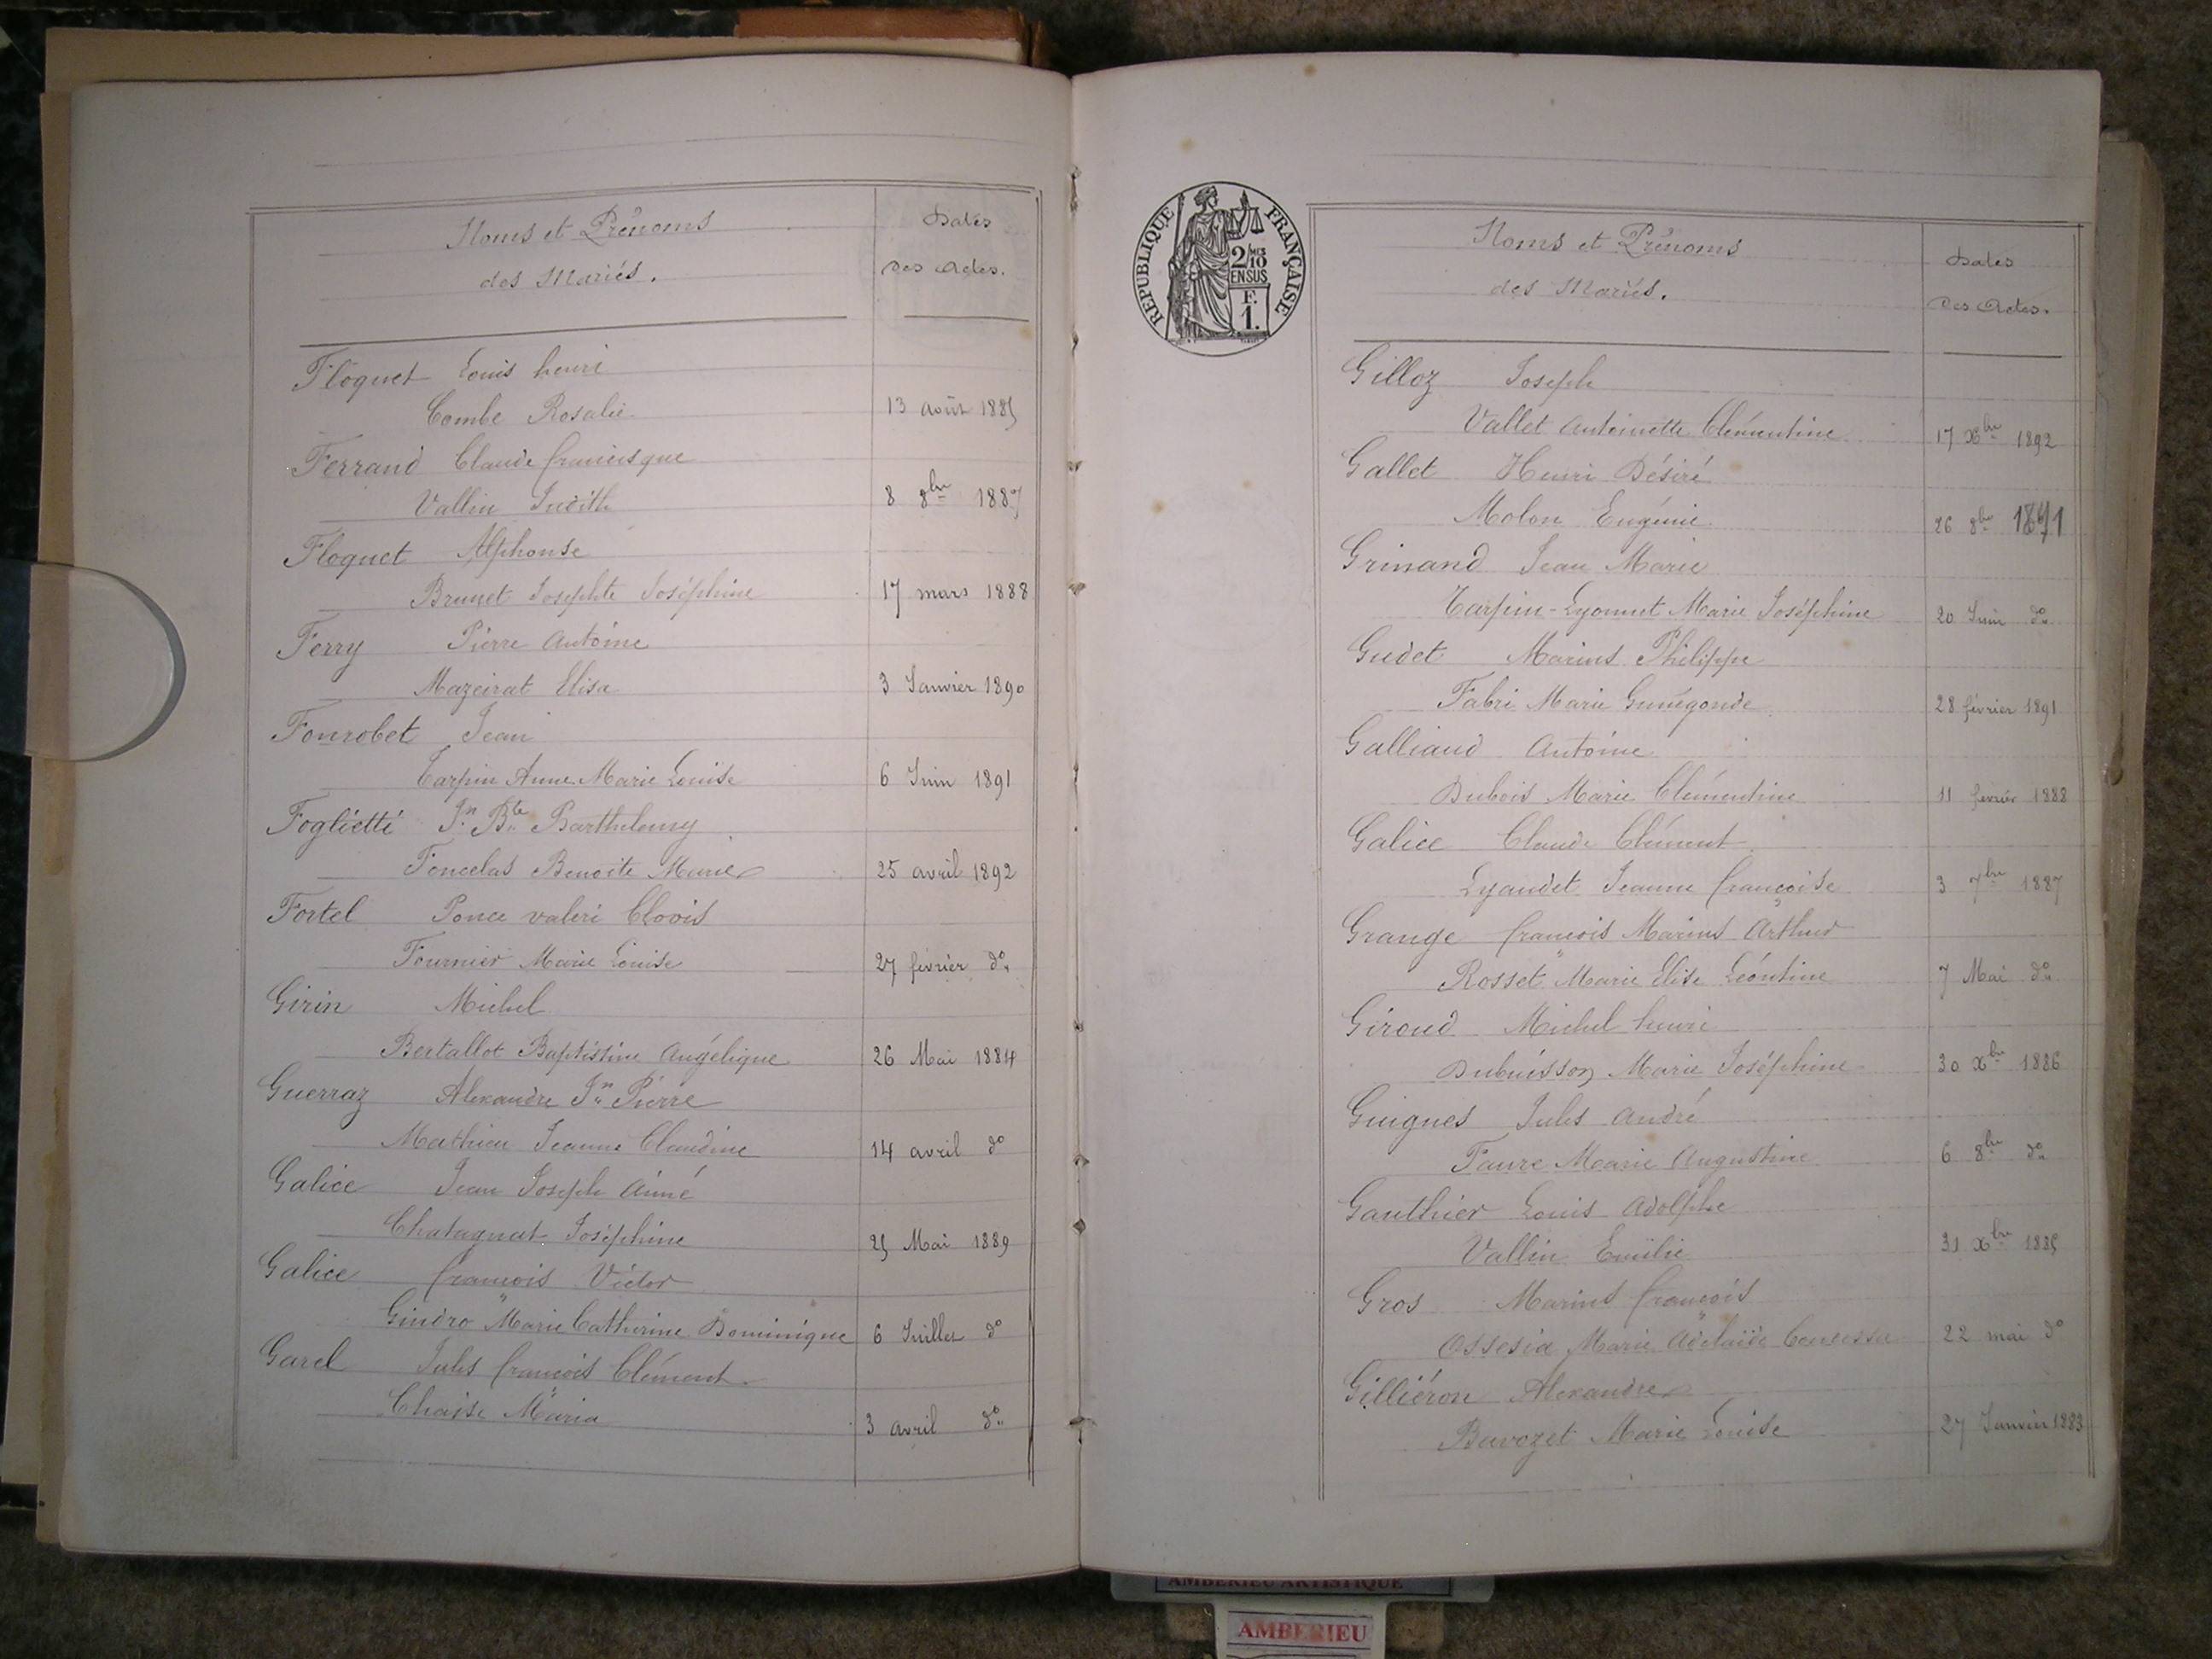 Noms et Prénoms
des Mariés.
Dates
des Actes.
Floquet Louis henri
Combe Rosalie 13 août 1885
Ferrand Claude francisque
Vallin Judith 8 8bre 1887
Floquet Alphonse
Brunet Josephte Joséphine 17 mars 1888
Ferry Pierre Antoine
Mazeirat Elisa 3 Janvier 1890
Fonrobet Jean
Tarpin Anne Marie Louise 6 Juin 1891
Foglietti Jn Bte Barthelemy
Foncelas Benoite Marie 25 avril 1892
Fortel Ponce valeri Clovis
Fournier Marie Louise 27 février do
Girin Michel
Bertallot Baptistine Angélique 26 Mai 1884
Guerraz Alexandre Jn Pierre
Mathieu Jeanne Claudine 14 avril do
Galice Jean Joseph Aimé
Chatagnat Joséphine 25 Mai 1889
Galice francois Victor
Gindro Marie Catherine Dominique 6 Juillet do
Garel Jules francois Clément
Chaise Maria 3 avril do
REPUBLIQUE FRANÇAISE
2/10 MES
EN SUS
F.
1.
Noms et Prénoms
des Mariés.
Dates
des Actes.
Gilloz Joseph
Vallet Antoinette Clémentine 17 Xbre 1892
Gallet Henri Désiré
Molon Eugénie 26 8bre 1891
Grinand Jean Marie
Tarpin-Lyonnet Marie Joséphine 20 Juin do
Gudet Marius Philippe
Fabri Marie Gunégonde 28 février 1891
Galliaud Antoine
Dubois Marie Clémentine 11 fevrier 1888
Galice Claude Clément
Lyaudet Jeanne françoise 3 7bre 1887
Grange françois Marius Arthur
Rosset Marie Elise Léontine 7 Mai do
Giroud Michel henri
Dubuisson Marie Joséphine 30 Xbre 1886
Guignes Jules André
Faure Marie Augustine 6 8bre do
Gauthier Louis Adolphe
Vallin Emilie 31 Xbre 1885
Gros Marius françois
Ossesia Marie Adelaïde 22 mai do
Gilliéron Alexandre
Bavozet Marie Louise 27 Janvier 1883
AMBERIEU ARTISTIQUE
AMBERIEU